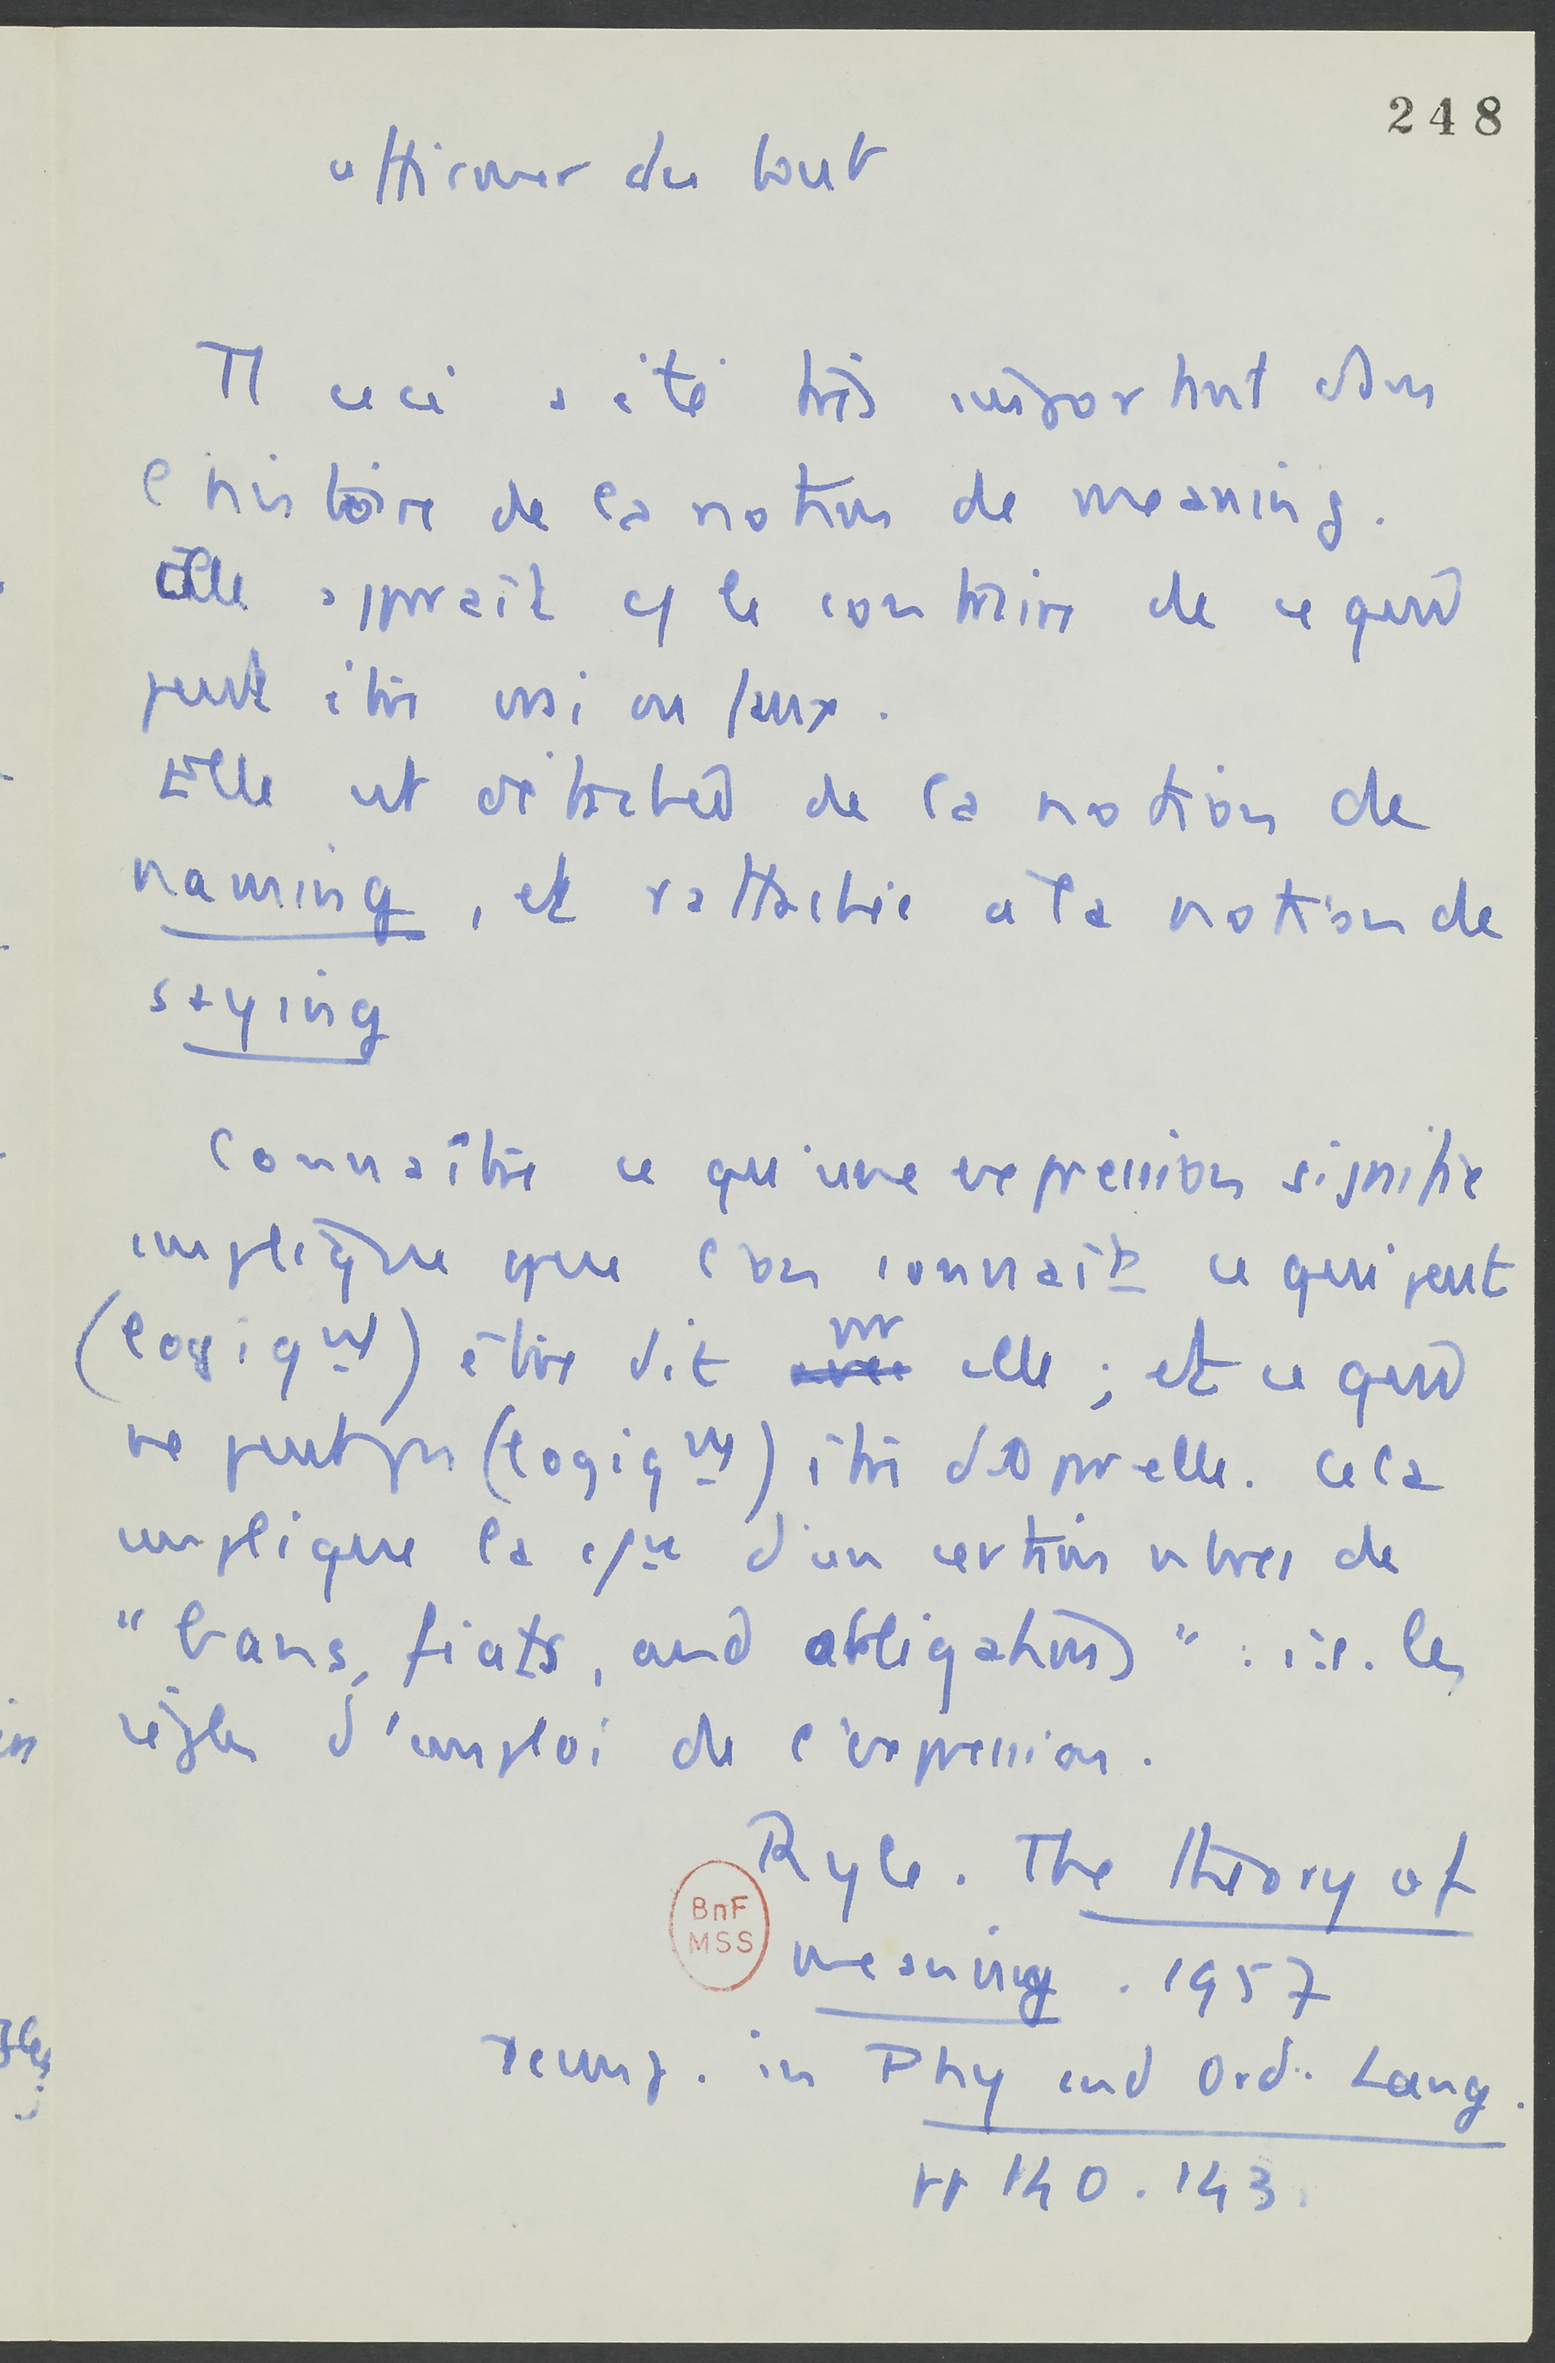 248
affirmer du tout
Tt ceci a été très important dans
l'histoire de la notion de meaning.
Elle apparaît c/ le contraire de ce qui
peut être vrai ou faux.
Elle est détachée de la notion de
naming, et rattachée à la notion de
saying
Connaître ce qu'une expression signifie
implique que l'on connaît ce qui peut
(logiqut) être dit par elle ; et ce qui
ne peut pas (logiqut) être dit par elle. Cela
implique la d'un certain nbre de
"bans, fiats, and obligations" : i.e. les
règles d'emploi de l'expression.
Ryle. The theory of
BnF
MSS
meaning. 1957
réimp. in Phy and Ord. Lang.
pp 140. 143